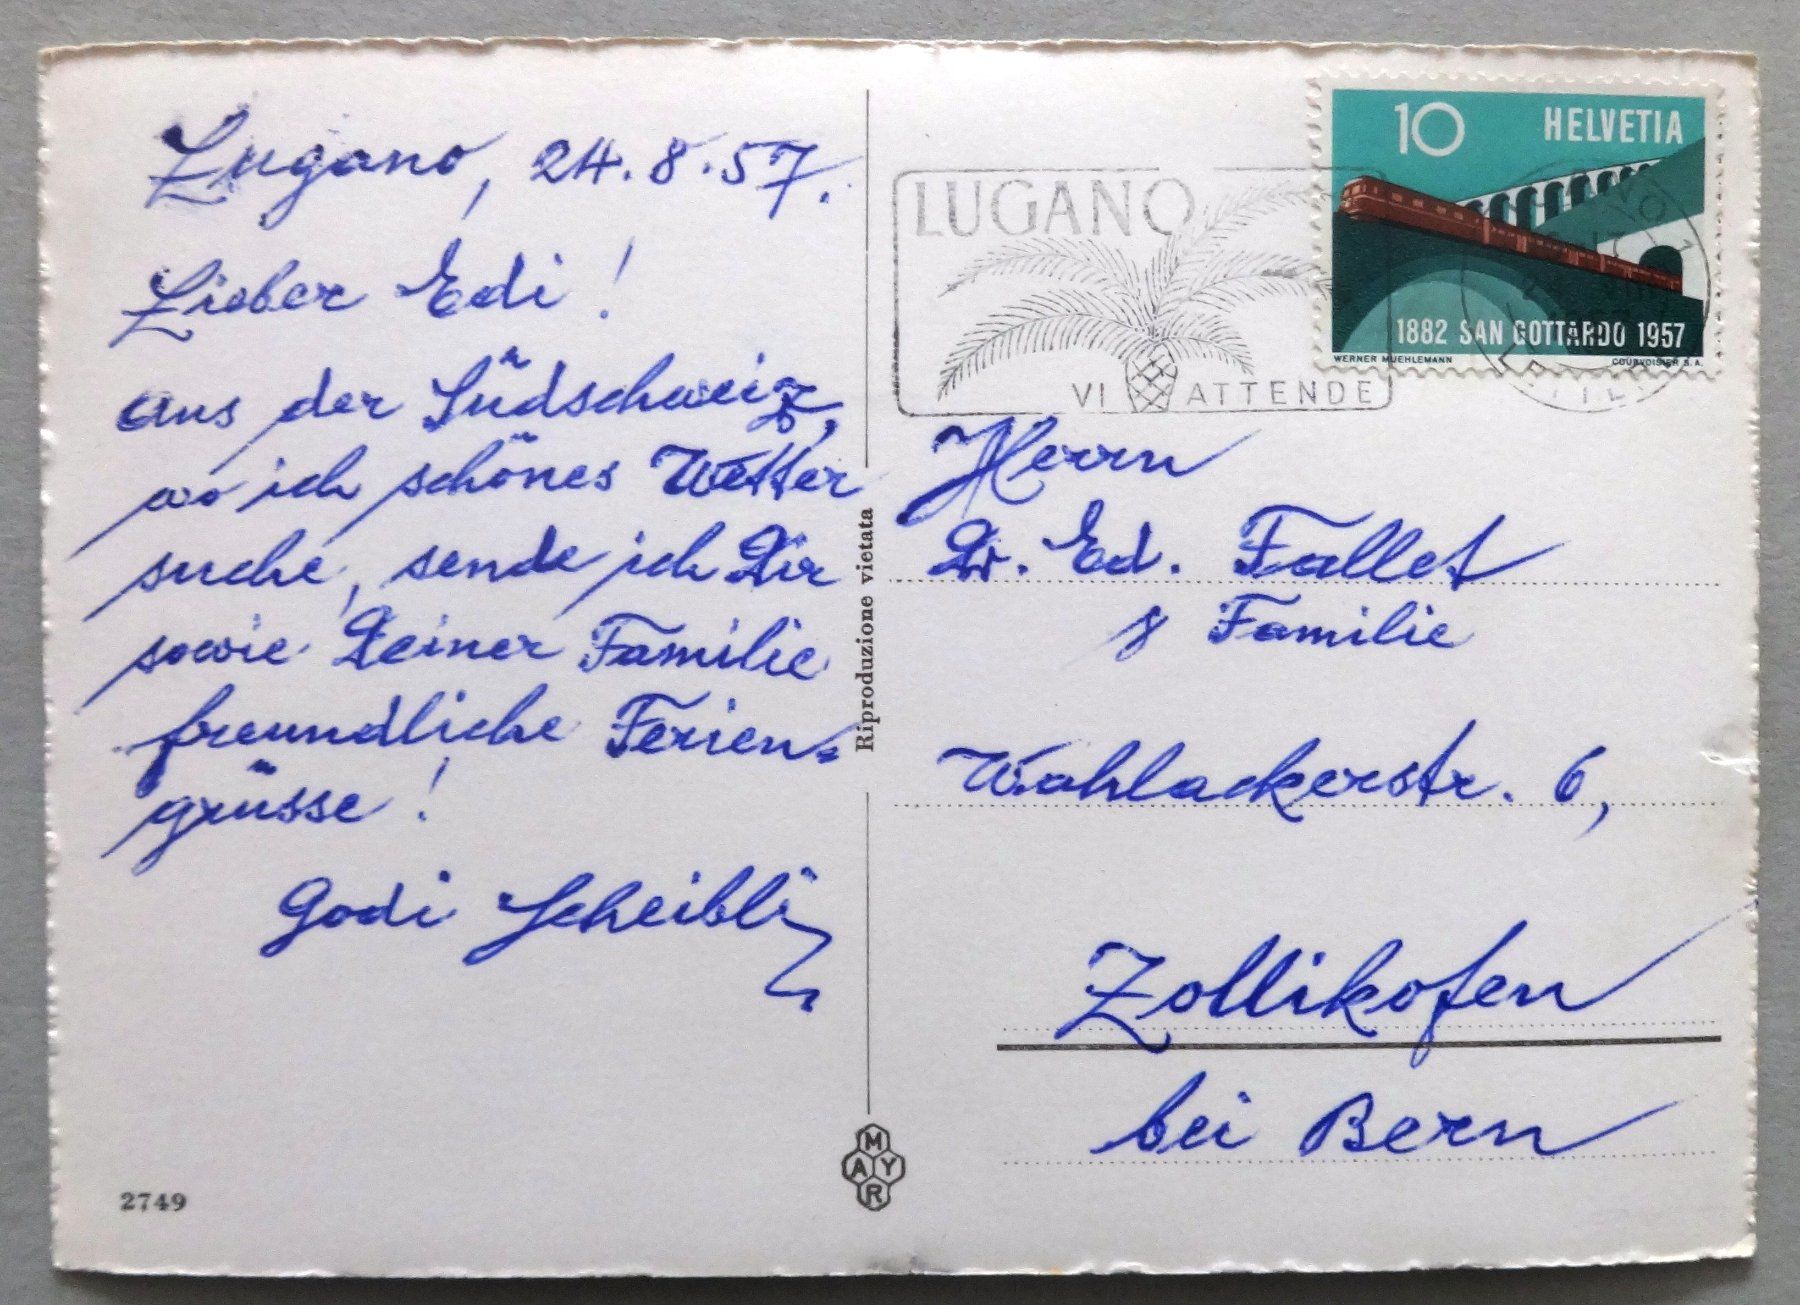 Lugano, 24.8.57.
Lieber Edi!
aus der Südschweiz,
wo ich schönes Wetter
suche, sende ich Dir
sowie Deiner Familie
freundliche Ferien=
grüsse!
Godi Scheibli
2749
Riproduzione vietata
MAYR
LUGANO
VI ATTENDE
10 HELVETIA
1882 SAN GOTTARDO 1957
WERNER MUEHLEMANN COURVOISIER S.A.
Herrn
Dr. Ed. Fallet
& Familie
Wahlackerstr. 6,
Zollikofen
bei Bern